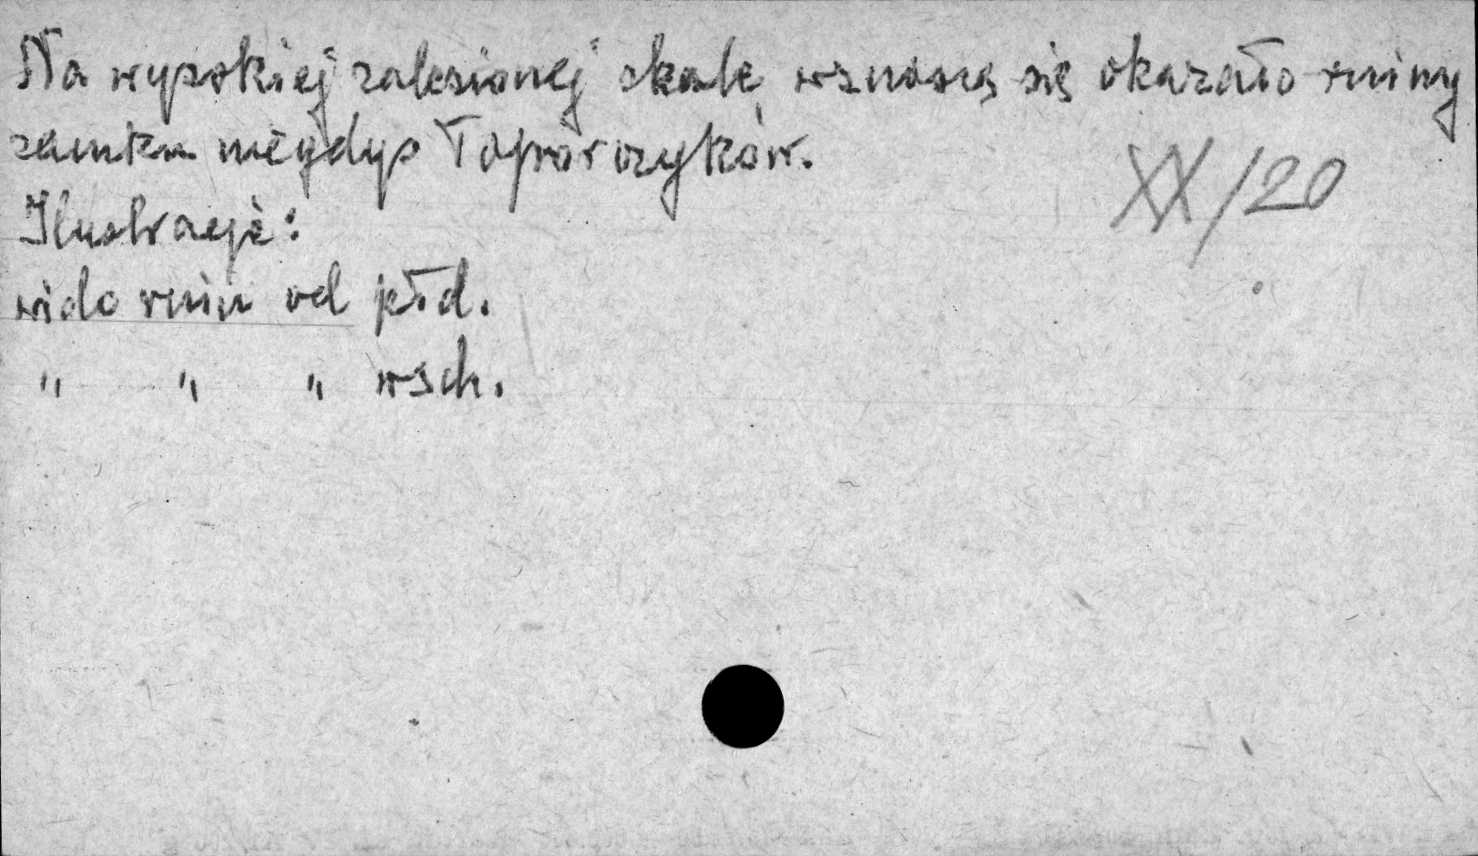 Na wysokiej zalesionej skale wznoszą się okazałe ruiny
zamku niegdyś Toporczyków.
XX/20
Ilustracje:
widok ruin od płd.
" " " wsch.